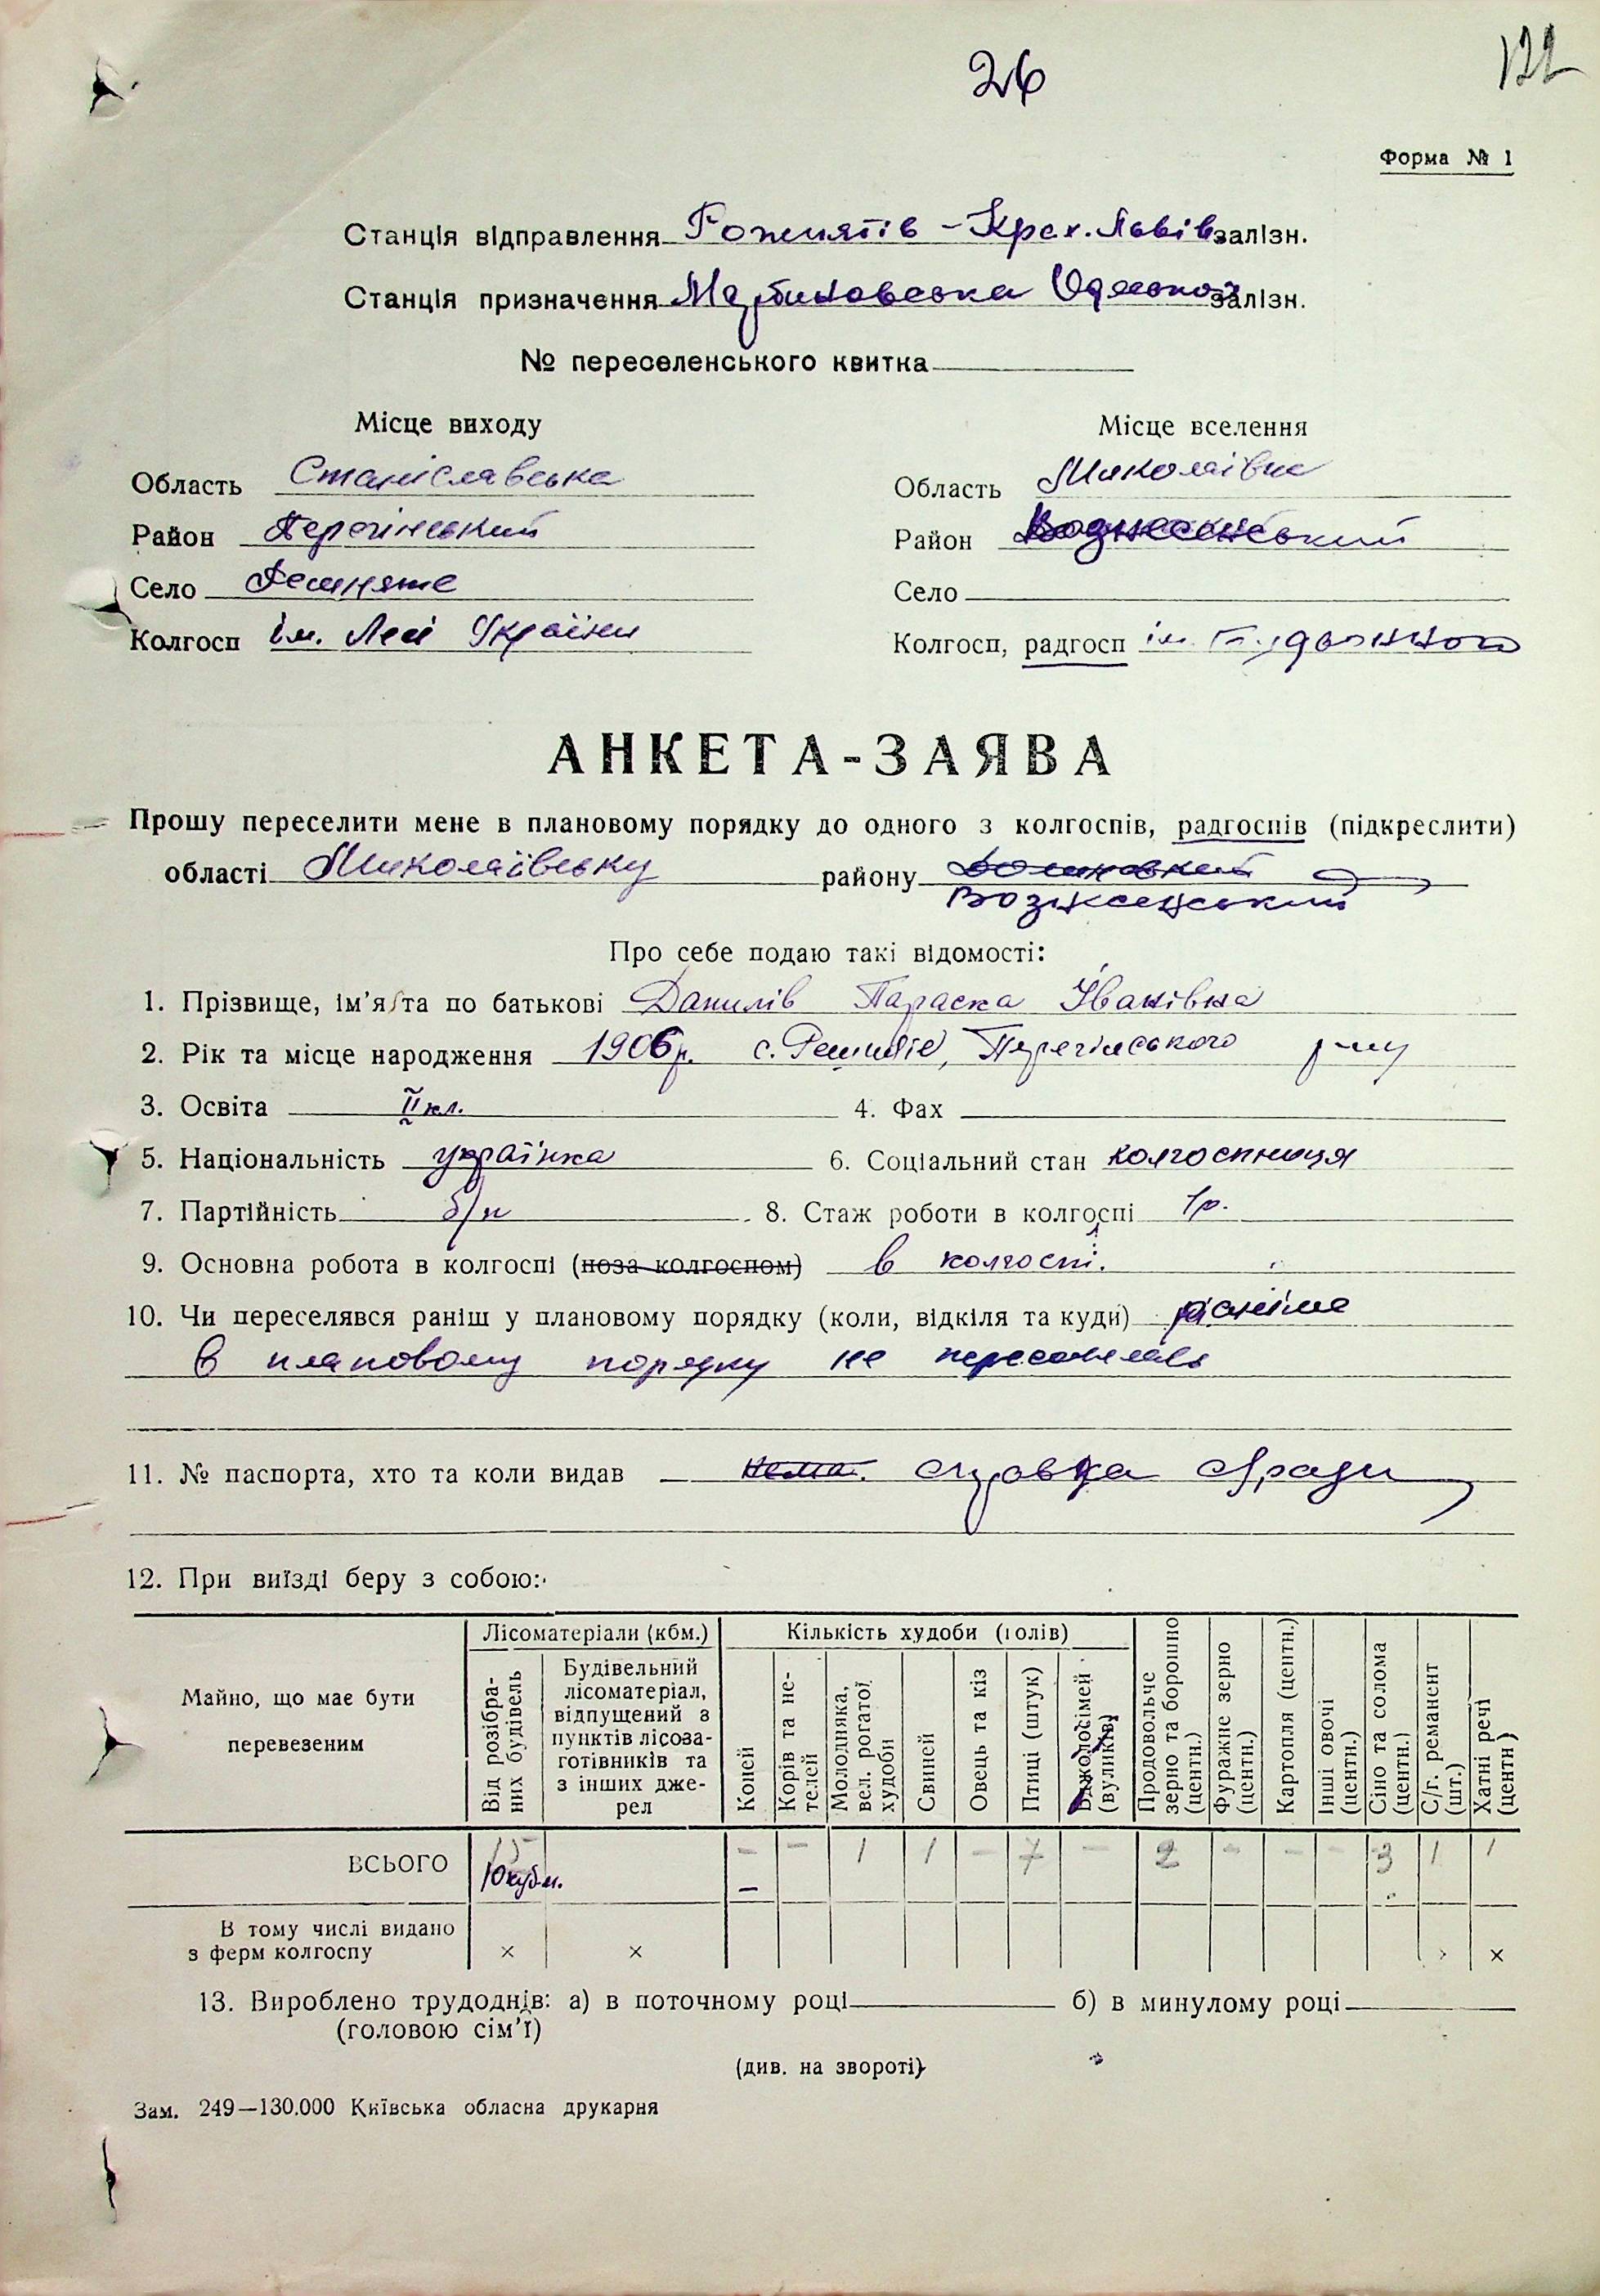 26
122
Форма № 1
Станція відправлення Рожнятів - Крех. Львів. залізн.
Станція призначення Мартиновська Одеської залізн.
№ переселенського квитка
Місце виходу
Місце вселення
Область Станіславська
Область Миколаївка
Район Перегінський
Район Вознесенський
Село
Село
Колгосп ім. Лесі Українки
Колгосп, радгосп ім. Будьонного
АНКЕТА-ЗАЯВА
Прошу переселити мене в плановому порядку до одного з колгоспів, радгоспів (підкреслити)
області Миколаївську району
Вознесенський
Про себе подаю такі відомості:
1. Прізвище, ім'я та по батькові Данилів Параска Іванівна
2. Рік та місце народження 1906 р. с. Перегінського р-ну
3. Освіта II кл. 4. Фах
5. Національність українка 6. Соціальний стан колгоспниця
7. Партійність б/п 8. Стаж роботи в колгоспі 1 р.
9. Основна робота в колгоспі (поза колгоспом) в колгоспі.
10. Чи переселявся раніш у плановому порядку (коли, відкіля та куди) раніше
в плановому порядку не переселялась
11. № паспорта, хто та коли видав нема. с/ради
12. При виїзді беру з собою:
Майно, що має бути перевезеним
Лісоматеріали (кбм.)
Кількість худоби (голів)
Від розібраних будівель
Будівельний лісоматеріал, відпущений з пунктів лісозаготівників та з інших джерел
Коней
Корів та нетелей
Молодняка, вел. рогатої худоби
Свиней
Овець та кіз
Птиці (штук)
Бджолосімей (вуликів)
Продовольче зерно та борошно (центн.)
Фуражне зерно (центн.)
Картопля (центн.)
Інші овочі (центн.)
Сіно та солома (центн.)
С/г. реманент (шт.)
Хатні речі (центн)
ВСЬОГО 15 10 куб.м. - - 1 1 - 7 - 2 - - - 3 1 1
В тому числі видано з ферм колгоспу × × × ×
13. Вироблено трудоднів: а) в поточному році б) в минулому році
(головою сім'ї)
(див. на звороті)
Зам. 249—130.000 Київська обласна друкарня